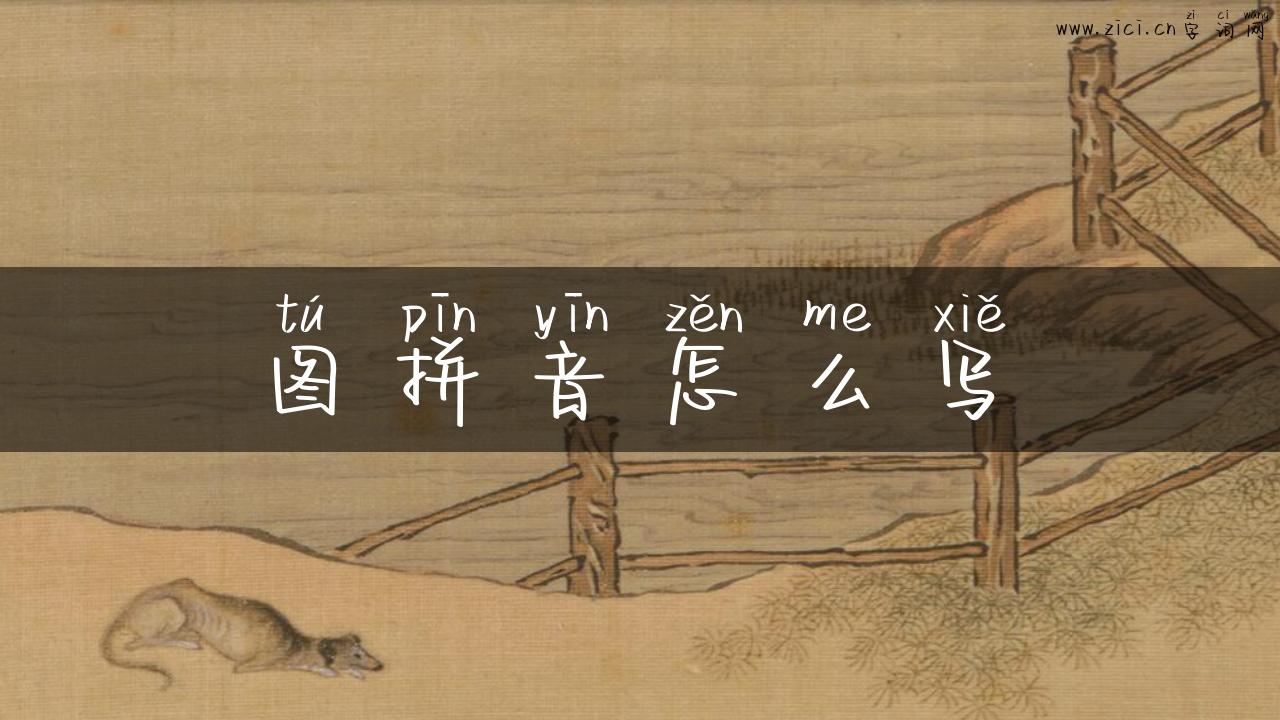 zì cí wǎng
www.zici.cn 字词网
tú pīn yīn zěn me xiě
图拼音怎么写